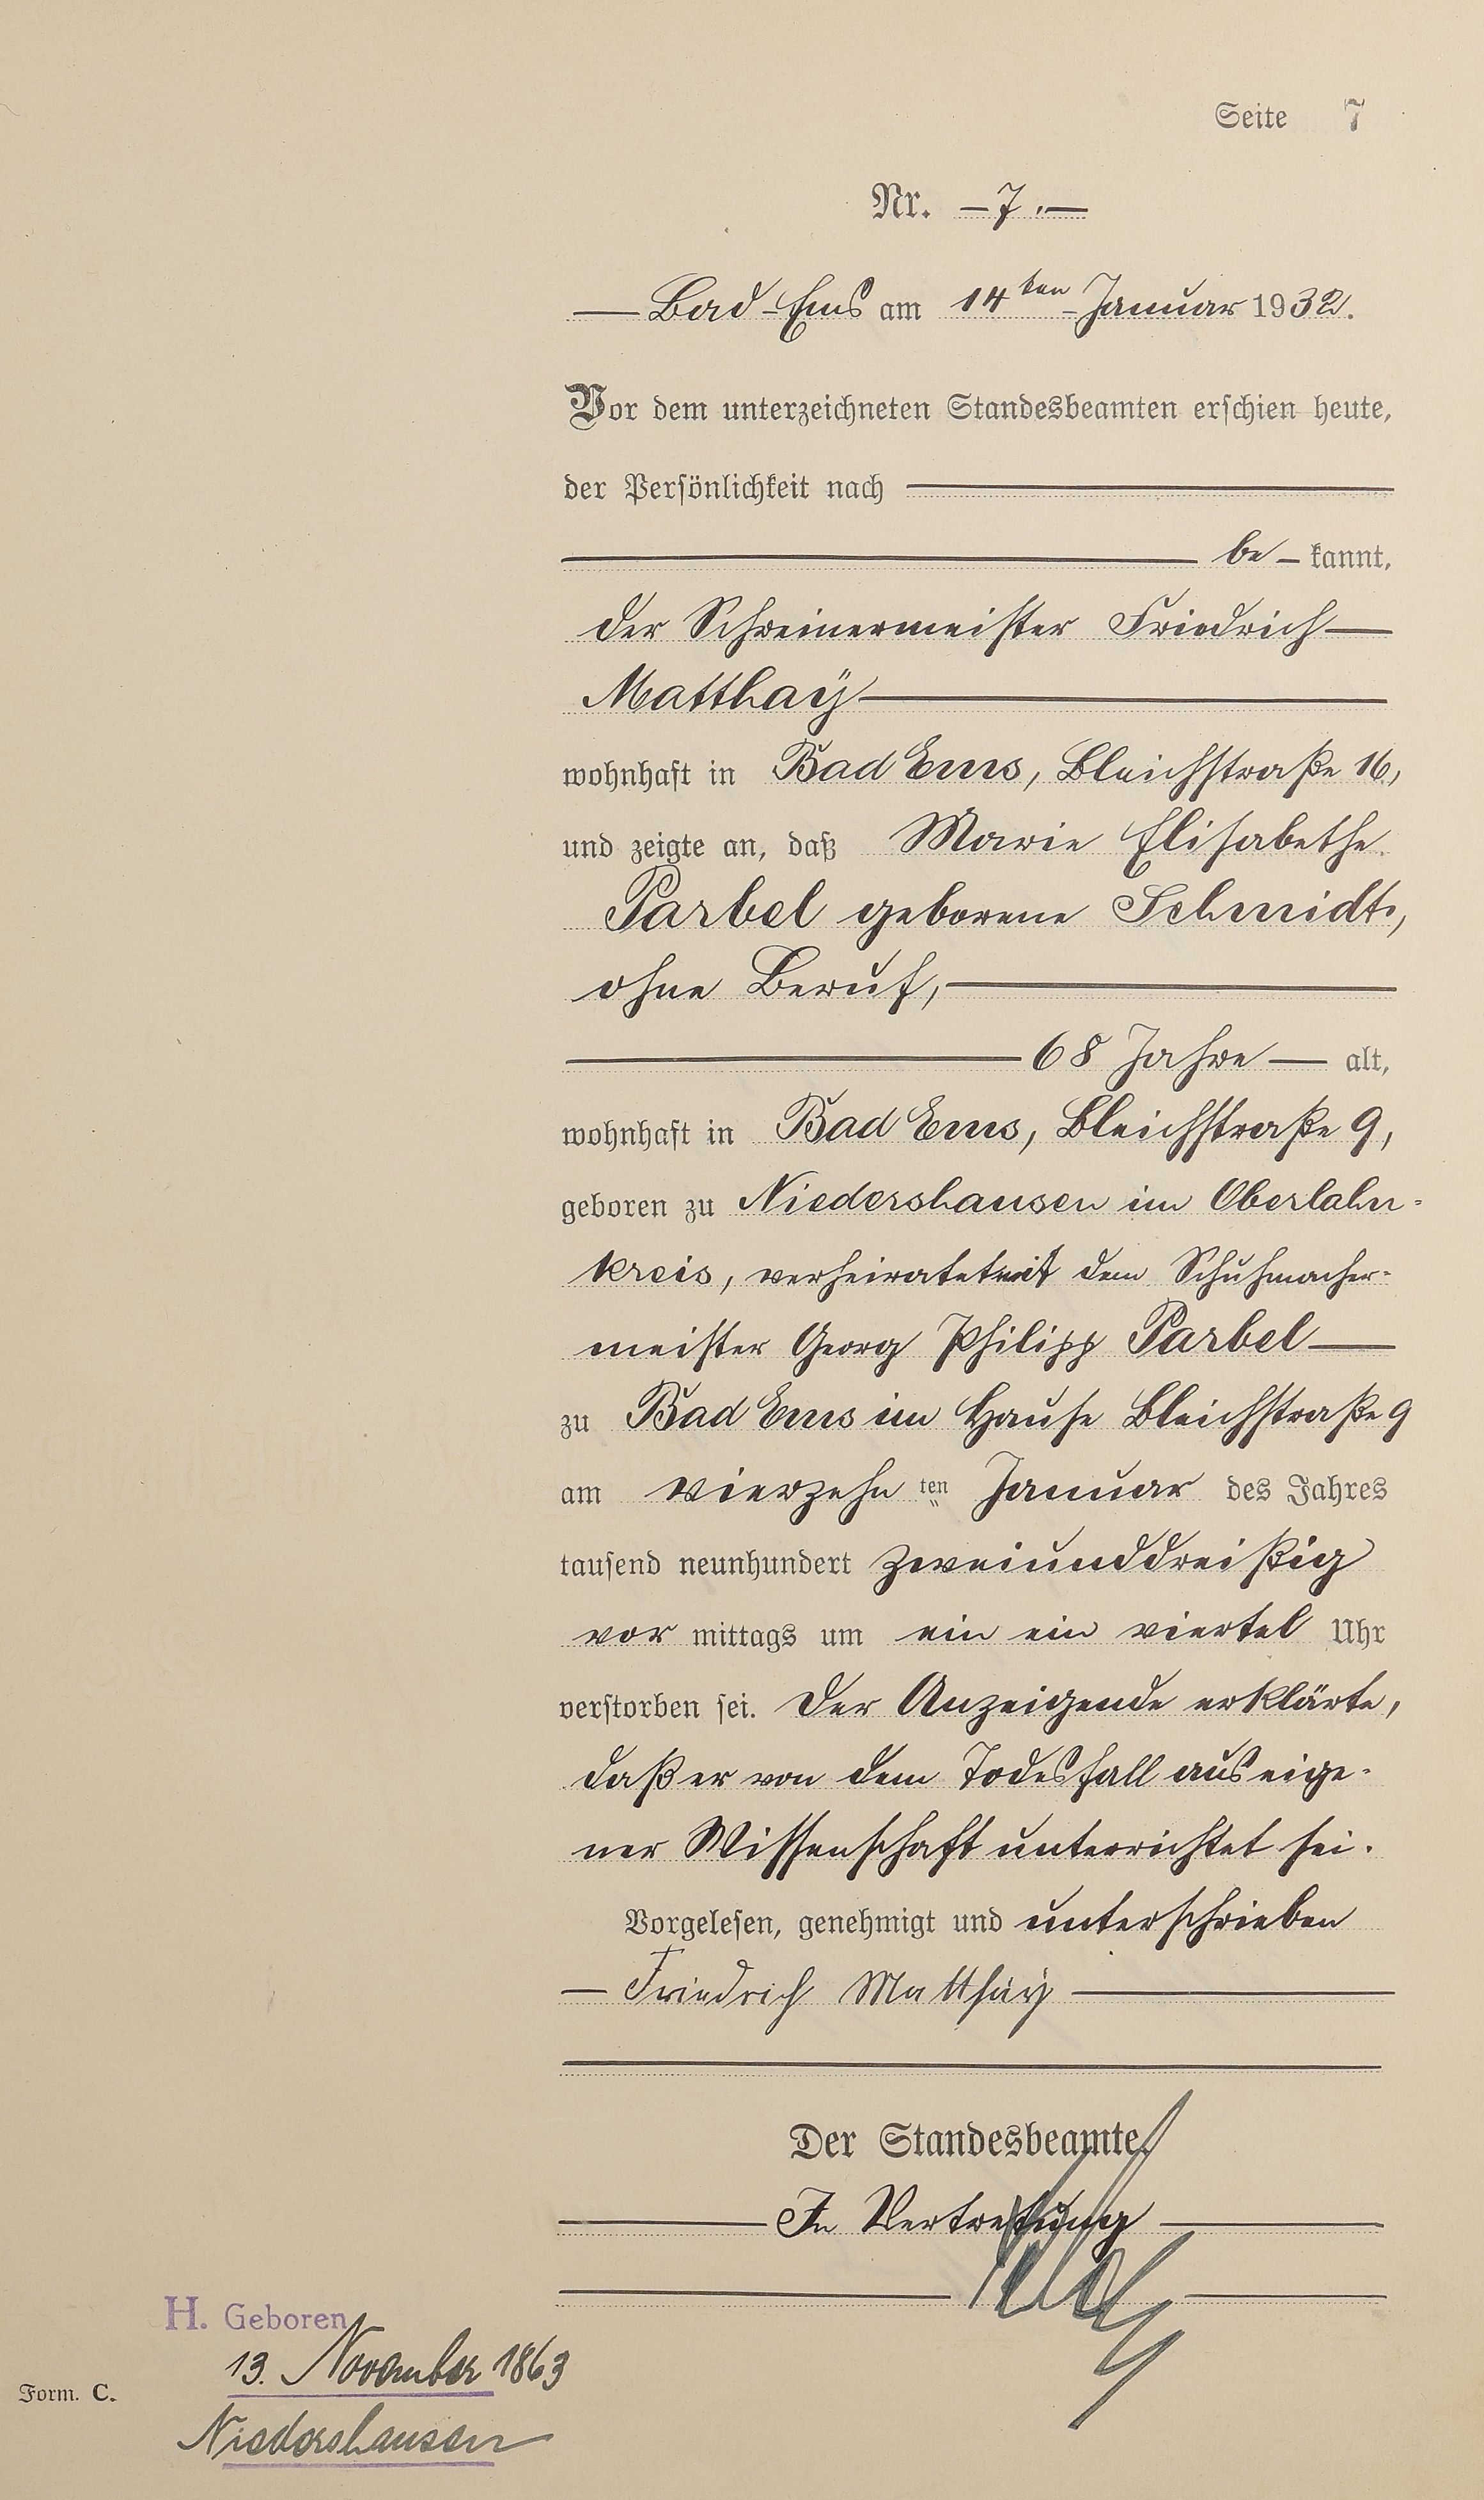 Seite 7
Nr. — 7. —
— Bad-Ems am 14ten Januar 1932.
Vor dem unterzeichneten Standesbeamten erschien heute,
der Persönlichkeit nach
be- kannt,
der Schreinermeister Friedrich
Matthaÿ
wohnhaft in Bad Ems, Bleichstraße 16,
und zeigte an, daß Marie Elisabethe
Parbel geborene Schmidt,
ohne Beruf,
68 Jahre alt,
wohnhaft in Bad Ems, Bleichstraße 9,
geboren zu Niedershausen im Oberlahn-
kreis, verheiratet mit dem Schuhmacher-
meister Georg Philipp Parbel
zu Bad Ems im Hause Bleichstraße 9
am vierzehn ten Januar des Jahres
tausend neunhundert zweiunddreißig
vor mittags um ein ein viertel Uhr
verstorben sei. Der Anzeigende erklärte,
daß er von dem Todesfall aus eige-
ner Wissenschaft unterrichtet sei.
Vorgelesen, genehmigt und unterschrieben
— Friedrich Matthäÿ
Der Standesbeamte.
In Vertretung
H. Geboren
13. November 1863
Form. C.
Niedershausen